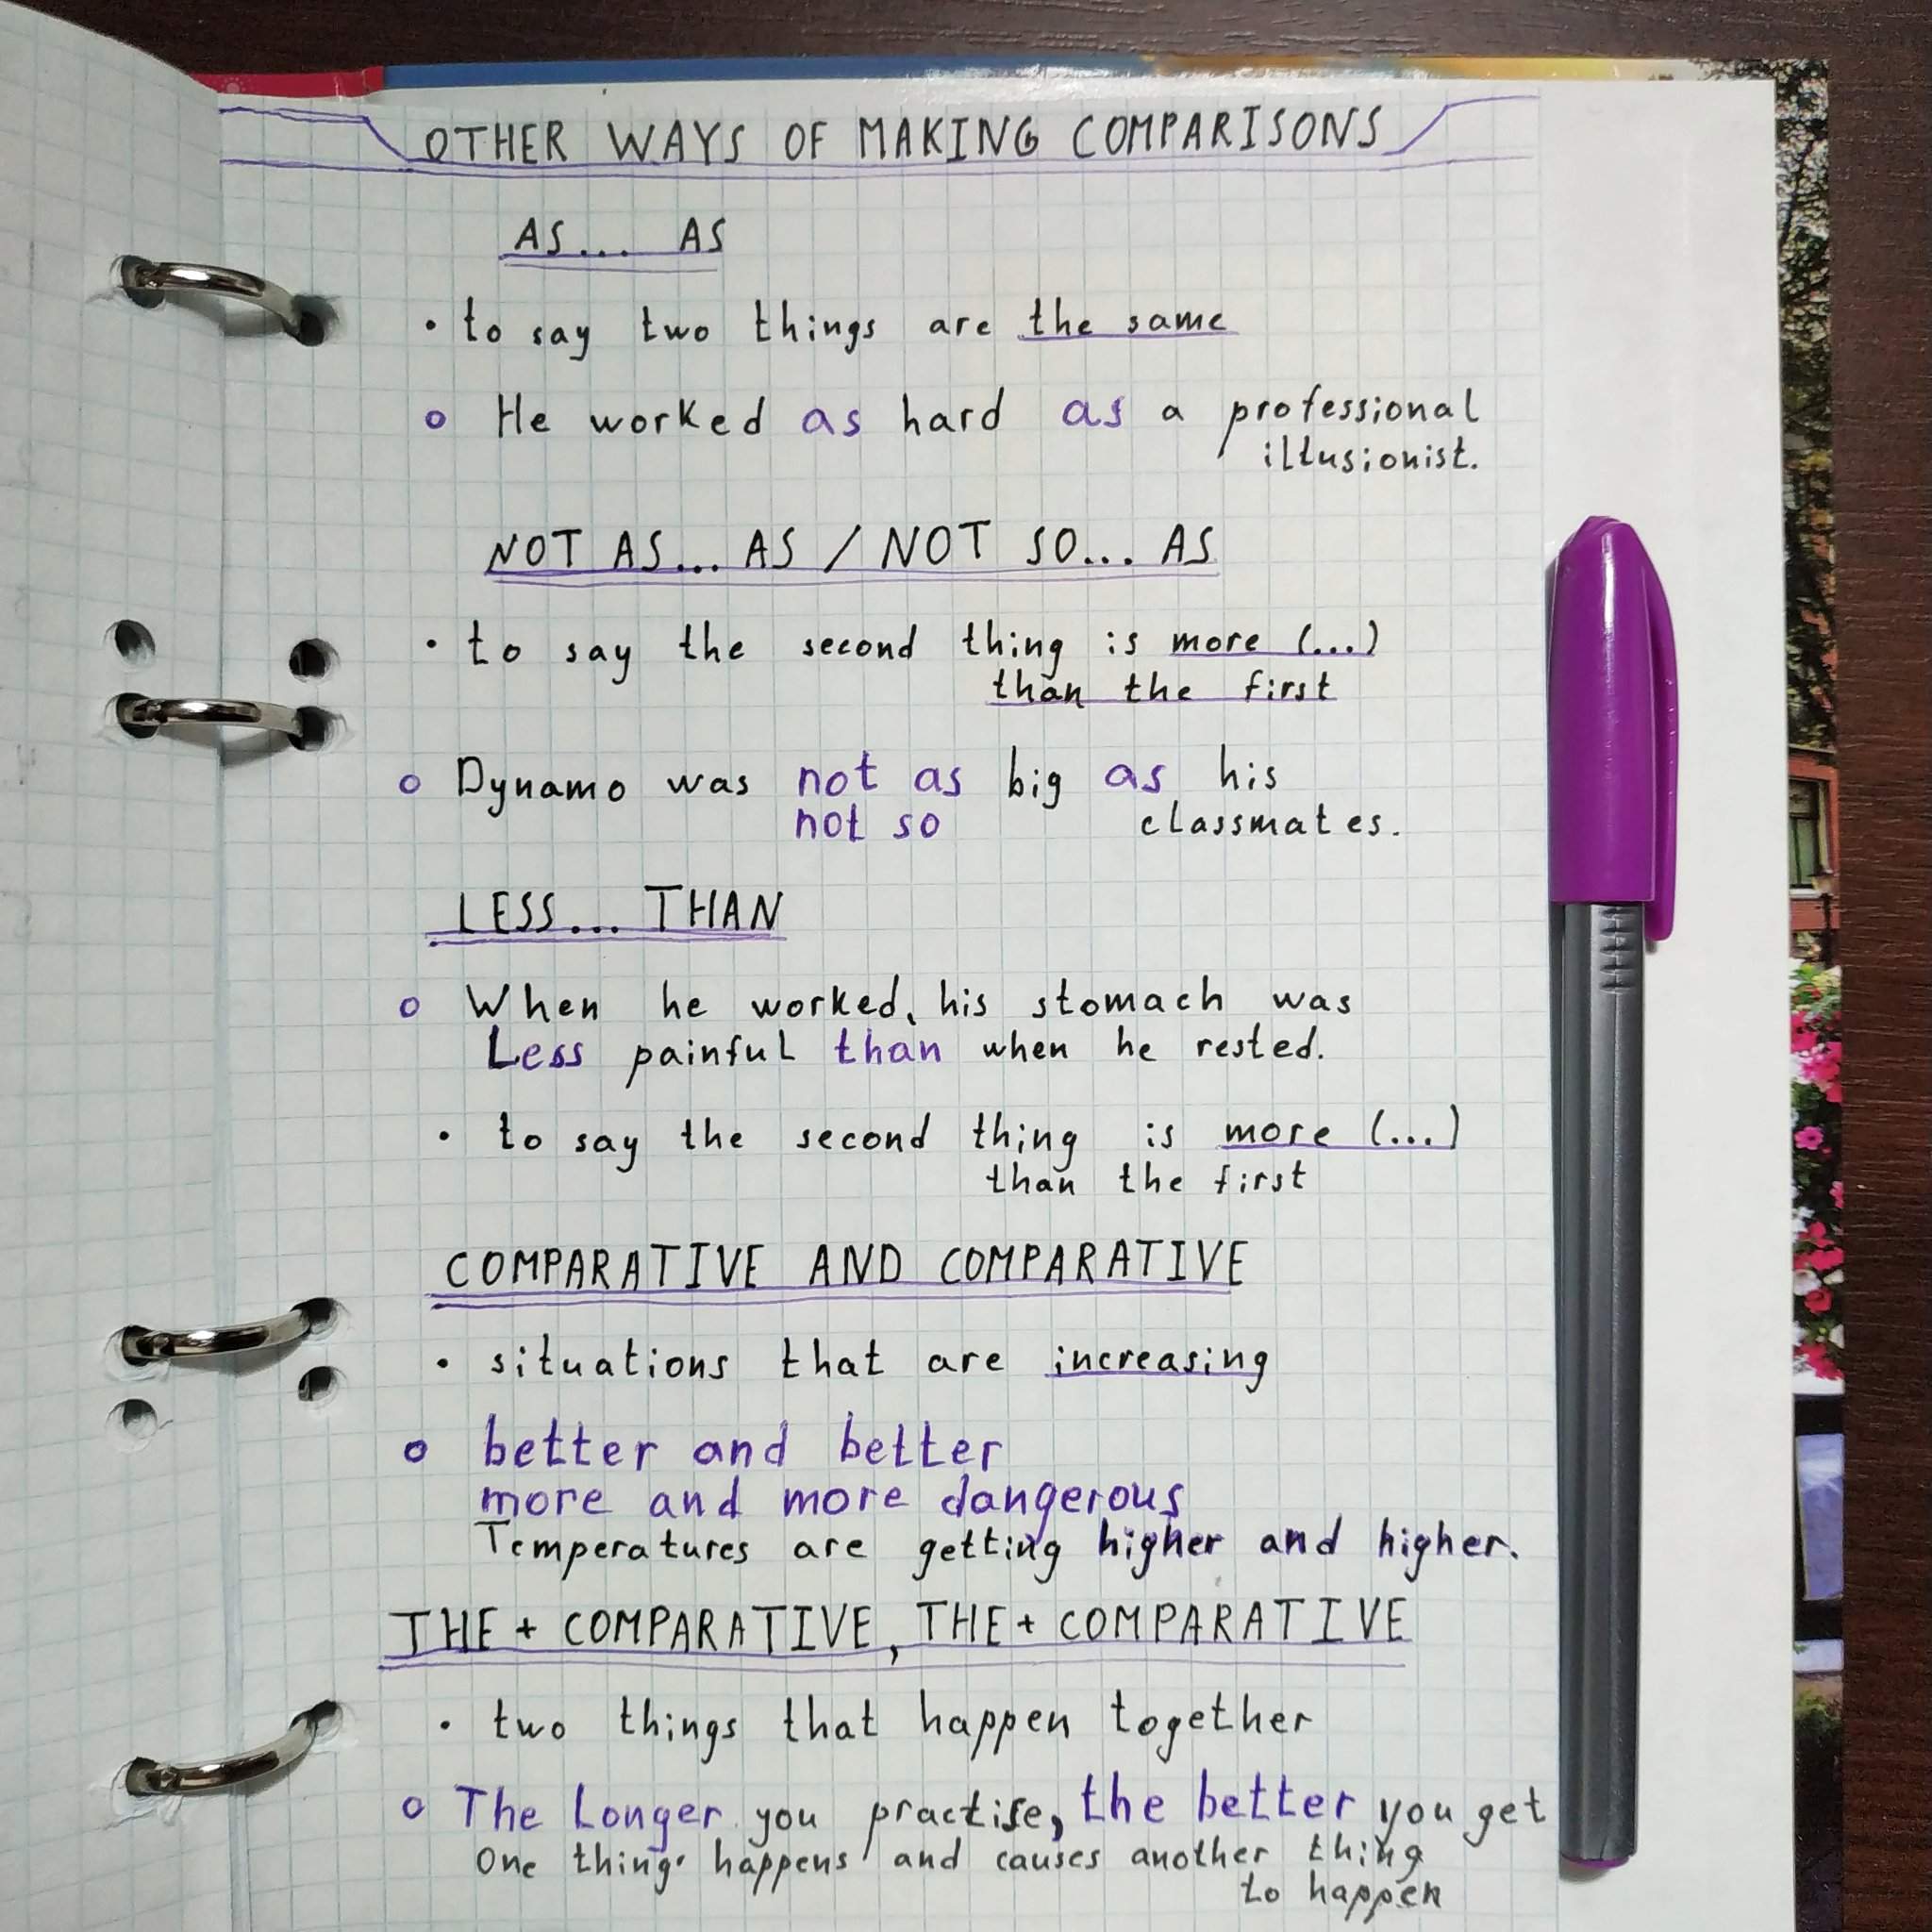 OTHER WAYS OF MAKING COMPARISONS
AS... AS
• to say two things are the same
o He worked as hard as a professional
illusionist.
NOT AS... AS / NOT SO... AS
• to say the second thing is more (...)
than the first
o Dynamo was not as big as his
not so classmates.
LESS... THAN
o When he worked, his stomach was
Less painful than when he rested.
• to say the second thing is more (...)
than the first
COMPARATIVE AND COMPARATIVE
• situations that are increasing
o better and better
more and more dangerous
Temperatures are getting higher and higher.
THE + COMPARATIVE, THE + COMPARATIVE
• two things that happen together
o The Longer you practise, the better you get
One thing happens and causes another thing
to happen